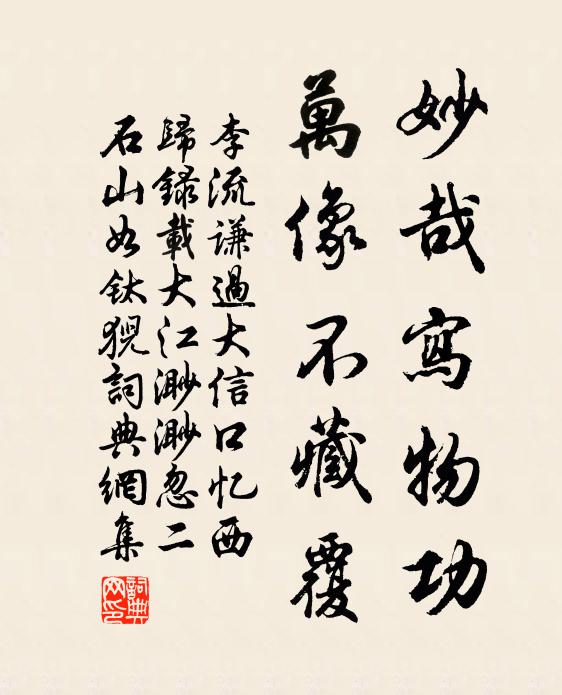 妙哉寫物功
萬像不藏覆
李流謙過大信口忆西
歸録載大江渺渺忽二
石山如钛猊詞典網集
詞典网印